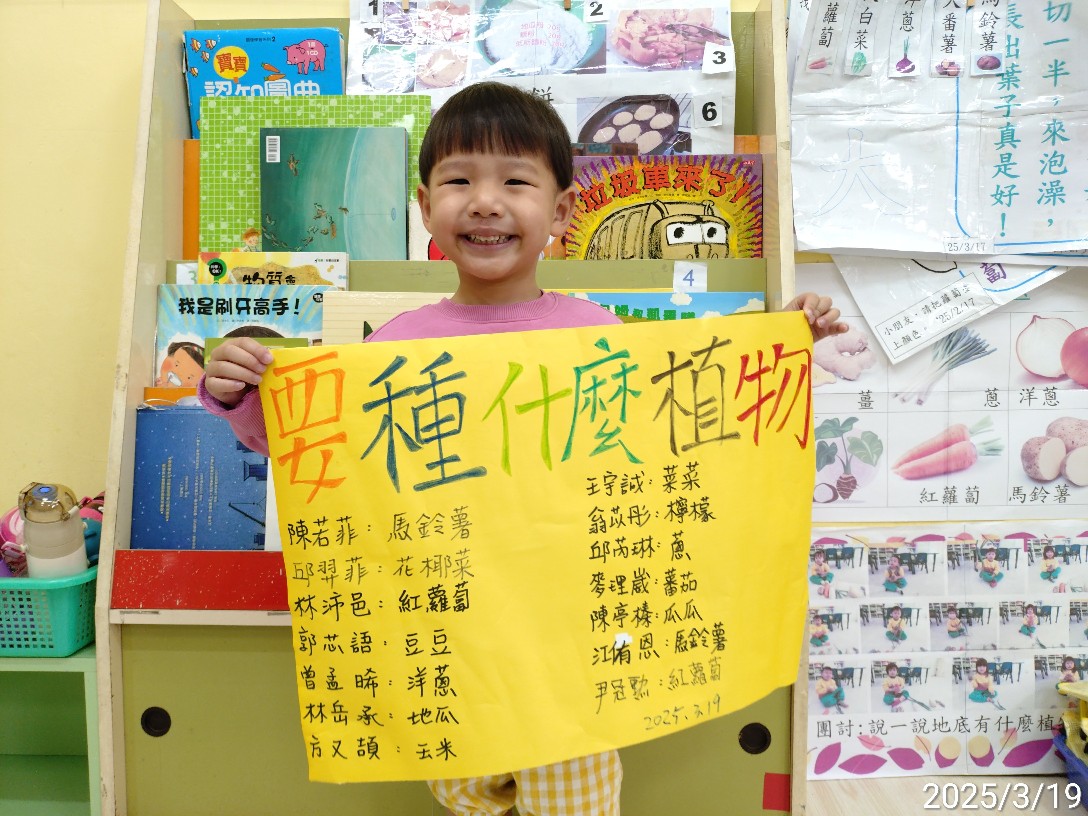 寶寶
認知圖典
1
2
3
6
餅
垃圾車來了!
物質
我是刷牙高手!
4
蘿蔔
白菜
洋蔥
大番薯
馬鈴薯
切一半,來泡澡,
長出葉子真是好!
大
25/3/17
蔔
小朋友:請把蘿蔔塗
上顏色。'25/2/17
薑
蔥
洋蔥
紅蘿蔔
馬鈴薯
要種什麼植物
陳若菲:馬鈴薯
邱羿菲:花椰菜
林沛邑:紅蘿蔔
郭芯語:豆豆
曾孟晞:洋蔥
林岳承:地瓜
方又頡:玉米
王宇誠:菜菜
翁苡彤:檸檬
邱芮琳:蔥
麥理崴:蕃茄
陳亭榛:瓜瓜
江侑恩:馬鈴薯
尹冠勳:紅蘿蔔
2025.3.19
團討:說一說地底有什麼植
2025/3/19